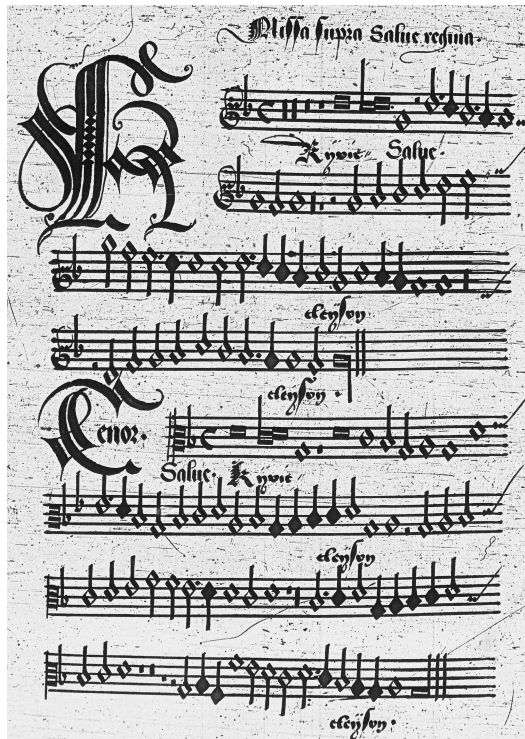 Missa supra Salue regina.
Kyrie Salue.
eleÿson
eleÿson.
Tenor.
Salue. Kyrie
eleÿson
eleÿson.